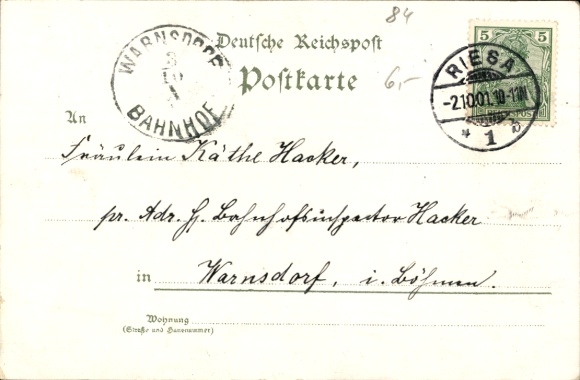 84
Deutsche Reichspost
Postkarte
6,-
WARNSDORF
BAHNHOF
5 5
REICHSPOST
RIESA
-2.10.01. 10-11V
* 1 b
An
Fräulein Käthe Hacker,
pr. Adr. H. Bahnhofsinspector Hacker
in Warnsdorf, i. Böhmen.
Wohnung
(Straße und Hausnummer)